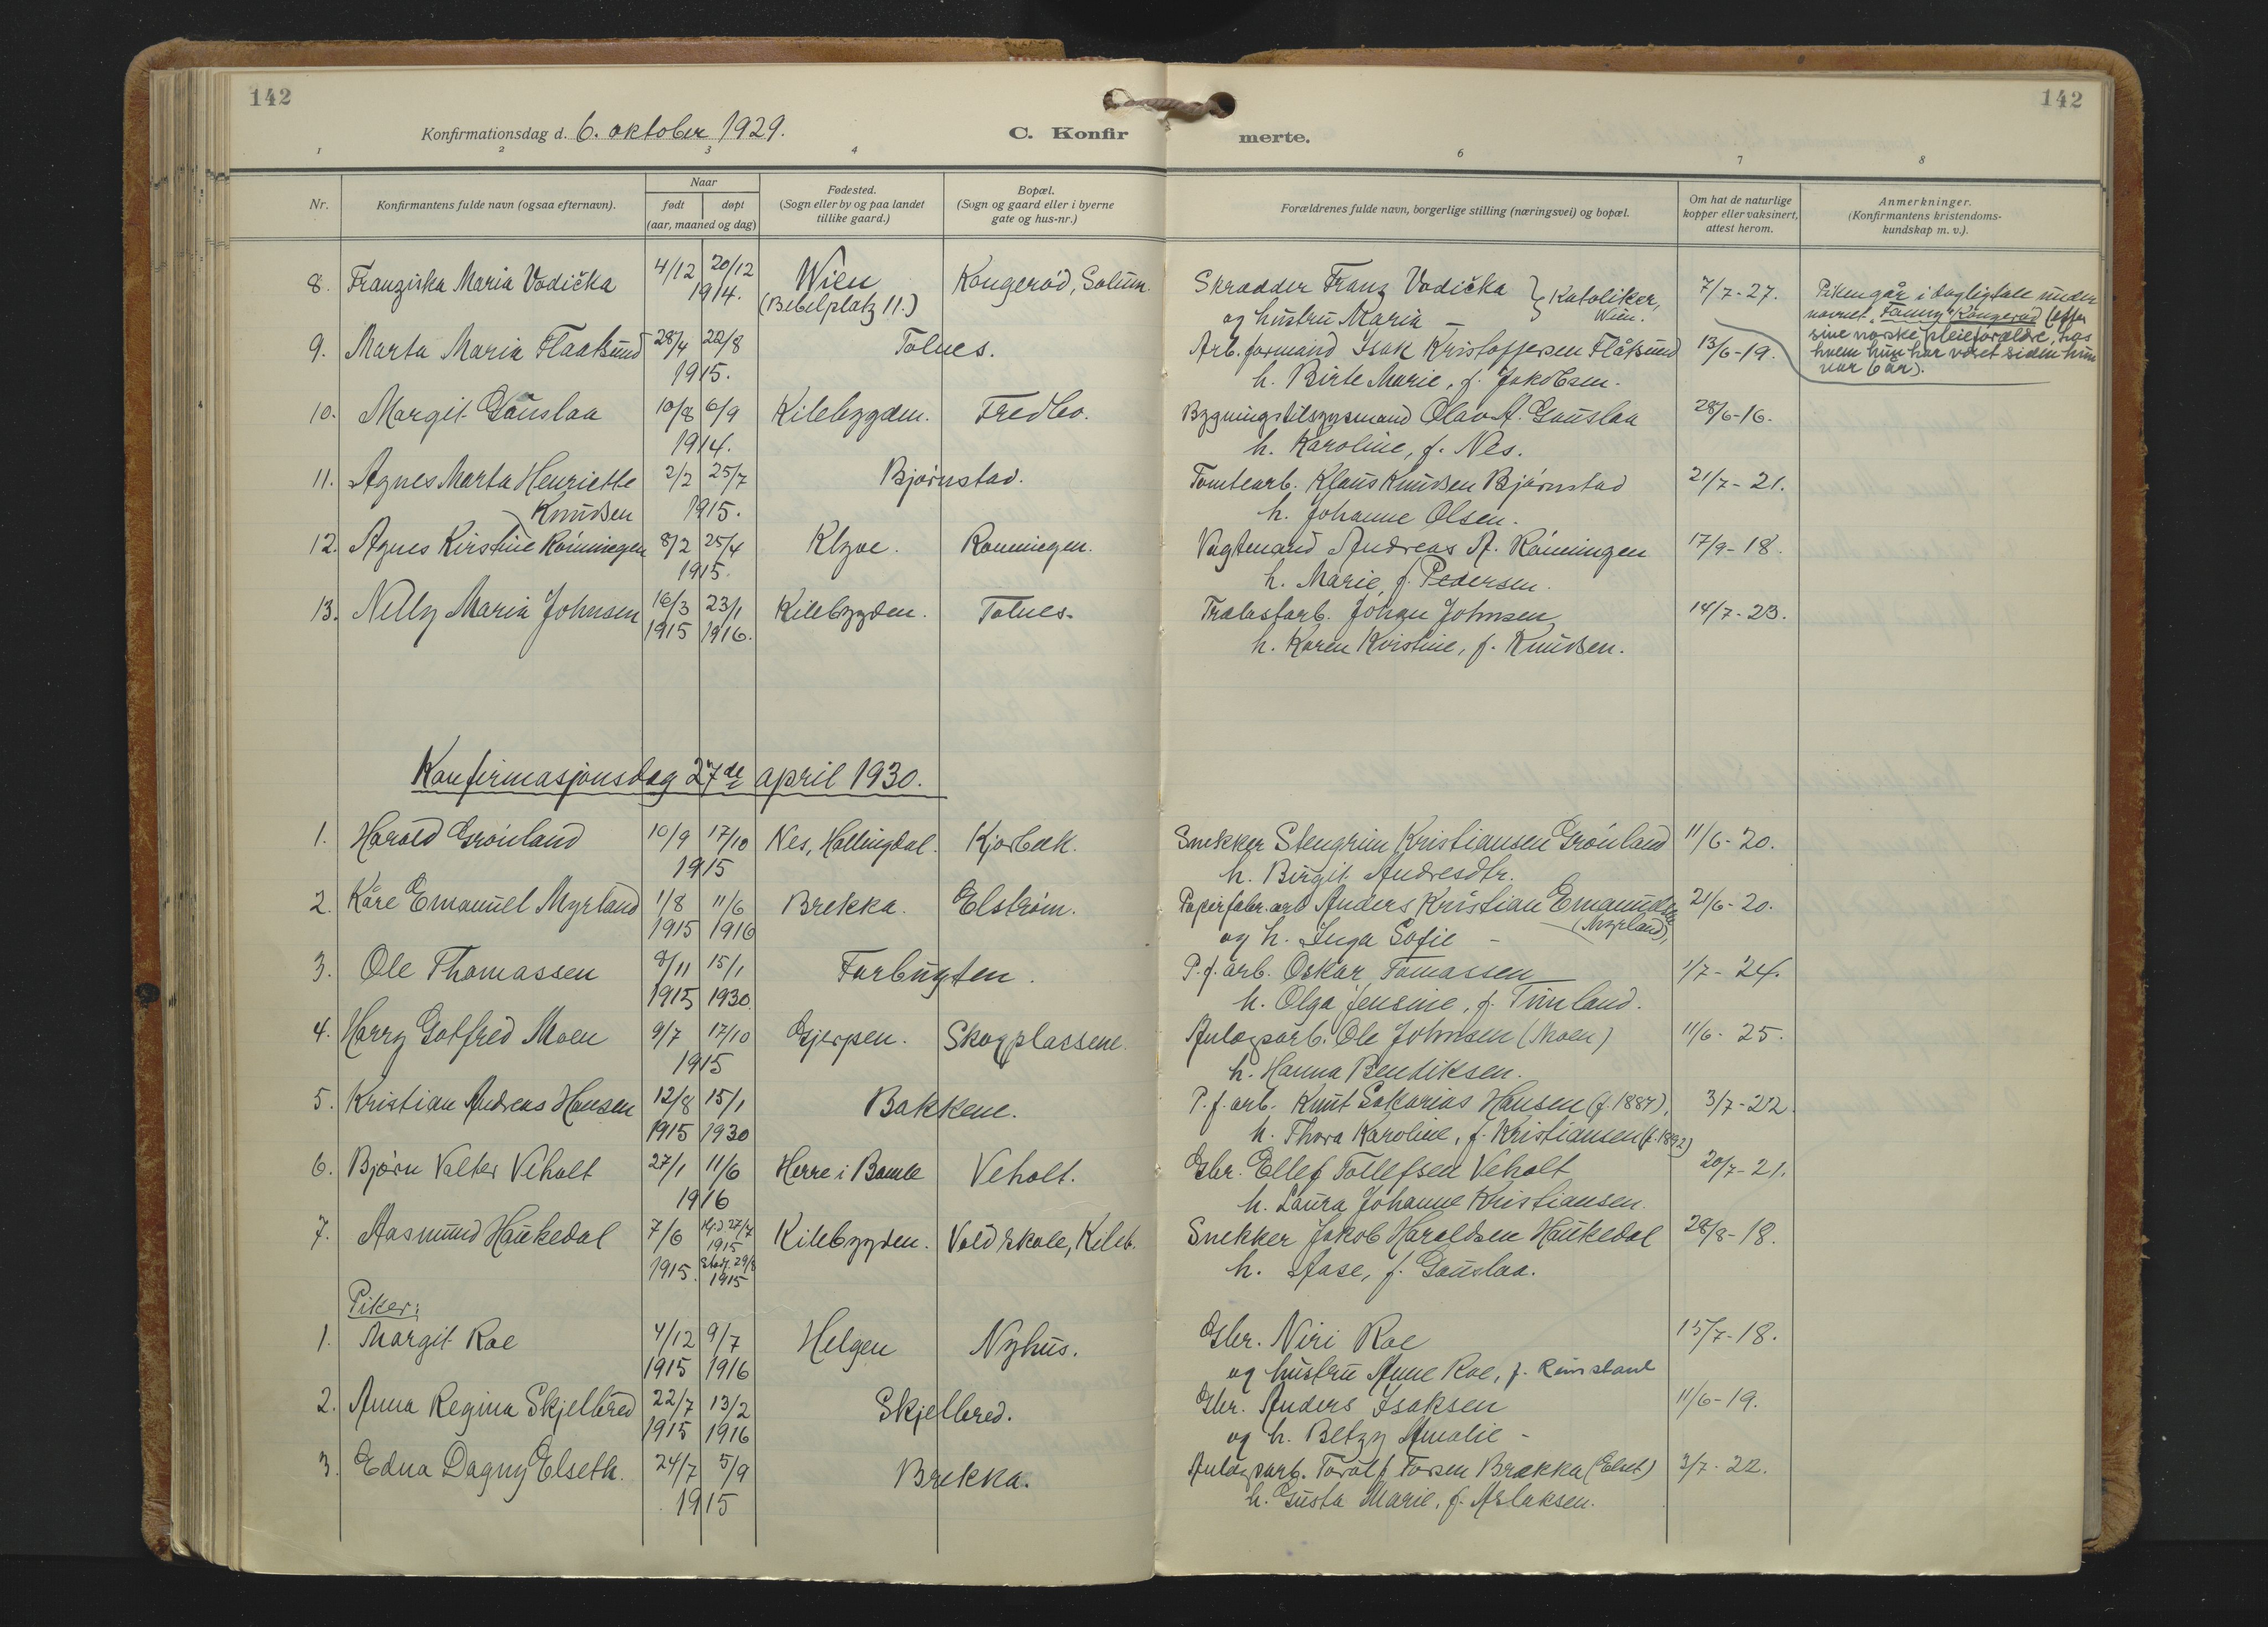 142
142
Konfirmationsdag d. 6. oktober 1929.
C. Konfir merte.
1 2 3 4 6 7 8
Nr.
Konfirmantens fulde navn (ogsaa efternavn).
Naar
født døpt
(aar, maaned og dag)
Fødested.
(Sogn eller by og paa landet
tillike gaard.)
Bopæl.
(Sogn og gaard eller i byerne
gate og hus-nr.)
Forældrenes fulde navn, borgerlige stilling (næringsvei) og bopæl.
Om hat de naturlige
kopper eller vaksinert,
attest herom.
Anmerkninger.
(Konfirmantens kristendoms-
kundskap m. v.).
8. Franziska Maria Vodička 4/12 20/12 Wien Kongerød, Solum. Skrædder Franz Vodička } Katoliker, 7/7-27. Piken går i dagligtale under
1914. (Bebelplatz 11.) og hustru Maria — Wien. navnet "Fanny Kongerød" (efter
sine norske pleieforældre, hos
hvem hun har været siden hun
var 6 år).
9. Marta Maria Flaaksund 28/4 22/8 Tolnes. Arb.formand Isak Kristoffersen Flåksund 13/6-19.
1915. h. Birte Marie, f. Jakobsen.
10. Margit Gauslaa 10/8 6/9 Kilebygden. Fredbo. Bygningstilsynsmand Olav A. Gauslaa 28/6-16.
1914. h. Karoline, f. Nes.
11. Agnes Marta Henriette 2/2 25/7 Bjørnstad. Tomtearb. Klaus Knudsen Bjørnstad 21/7-21.
Knudsen 1915. h. Johanne Olsen.
12. Agnes Kirstine Rønningen 8/2 25/4 Klyve. Rønningen. Vagtmand Andreas A. Rønningen 17/9-18.
1915. h. Marie, f. Pedersen.
13. Nelly Maria Johnsen 16/3 23/1 Kilebygden. Tolnes. Trælastarb. Johan Johnsen 14/7-23.
1915 1916. h. Karen Kristine, f. Knudsen.
Konfirmasjonsdag 27de april 1930.
1. Harald Grønland 10/9 17/10 Nes, Hallingdal. Kjørbæk. Snekker Stengrim Kristiansen Grønland 11/6-20.
1915 h. Birgit Andresdtr.
2. Kåre Emanuel Myrland 1/8 11/6 Brekka. Elstrøm. Papirfabr.arb Anders Kristian Emanuelsen 21/6-20.
1915 1916 og h. Inga Sofie - (Myrland),
3. Ole Thomassen 8/11 15/1 Farbugten. P.f.arb. Oskar Tomassen 1/7-24.
1915 1930 h. Olga Jensine, f. Tinnland.
4. Harry Gotfred Moen 9/7 17/10 Gjerpen. Skogplassene. Anlægsarb. Ole Johnsen (Moen) 11/6-25.
1915 h. Hanna Bendiksen.
5. Kristian Andreas Hansen 12/8 15/1 Bakkene. P.f.arb. Knut Sakarias Hansen (f.1887), 3/7-22.
1915 1930 h. Thora Karoline, f. Kristiansen (f.1892)
6. Bjørn Valter Veholt 27/1 11/6 Herre i Bamle Veholt. Gbr. Ellef Tollefsen Veholt 20/7-21.
1916 h. Laura Johanne Kristiansen.
7. Aasmund Haukedal 7/6 Hj.d. 27/7 Kilebygden. Vold skole, Kileb. Snekker Jakob Haraldsen Haukedal 28/8-18.
1915. 1915 stadf. 29/8 1915 h. Aase, f. Gauslaa.
Piker:
1. Margit Roe 4/12 9/7 Helgen Nyhus. Gbr. Niri Roe 15/7-18.
1915 1916 og hustru Anne Roe, f.
2. Anna Regina Skjelbred 22/7 13/2 Skjelbred. Gbr. Anders Isaksen 11/6-19.
1915 1916 og h. Betzy Amalie -
3. Edna Dagny Elseth. 24/7 5/9 Brekka. Anlægsarb. Toralf Torsen Brækka (Elset) 3/7-22.
1915 h. Gusta Marie, f. Aslaksen.